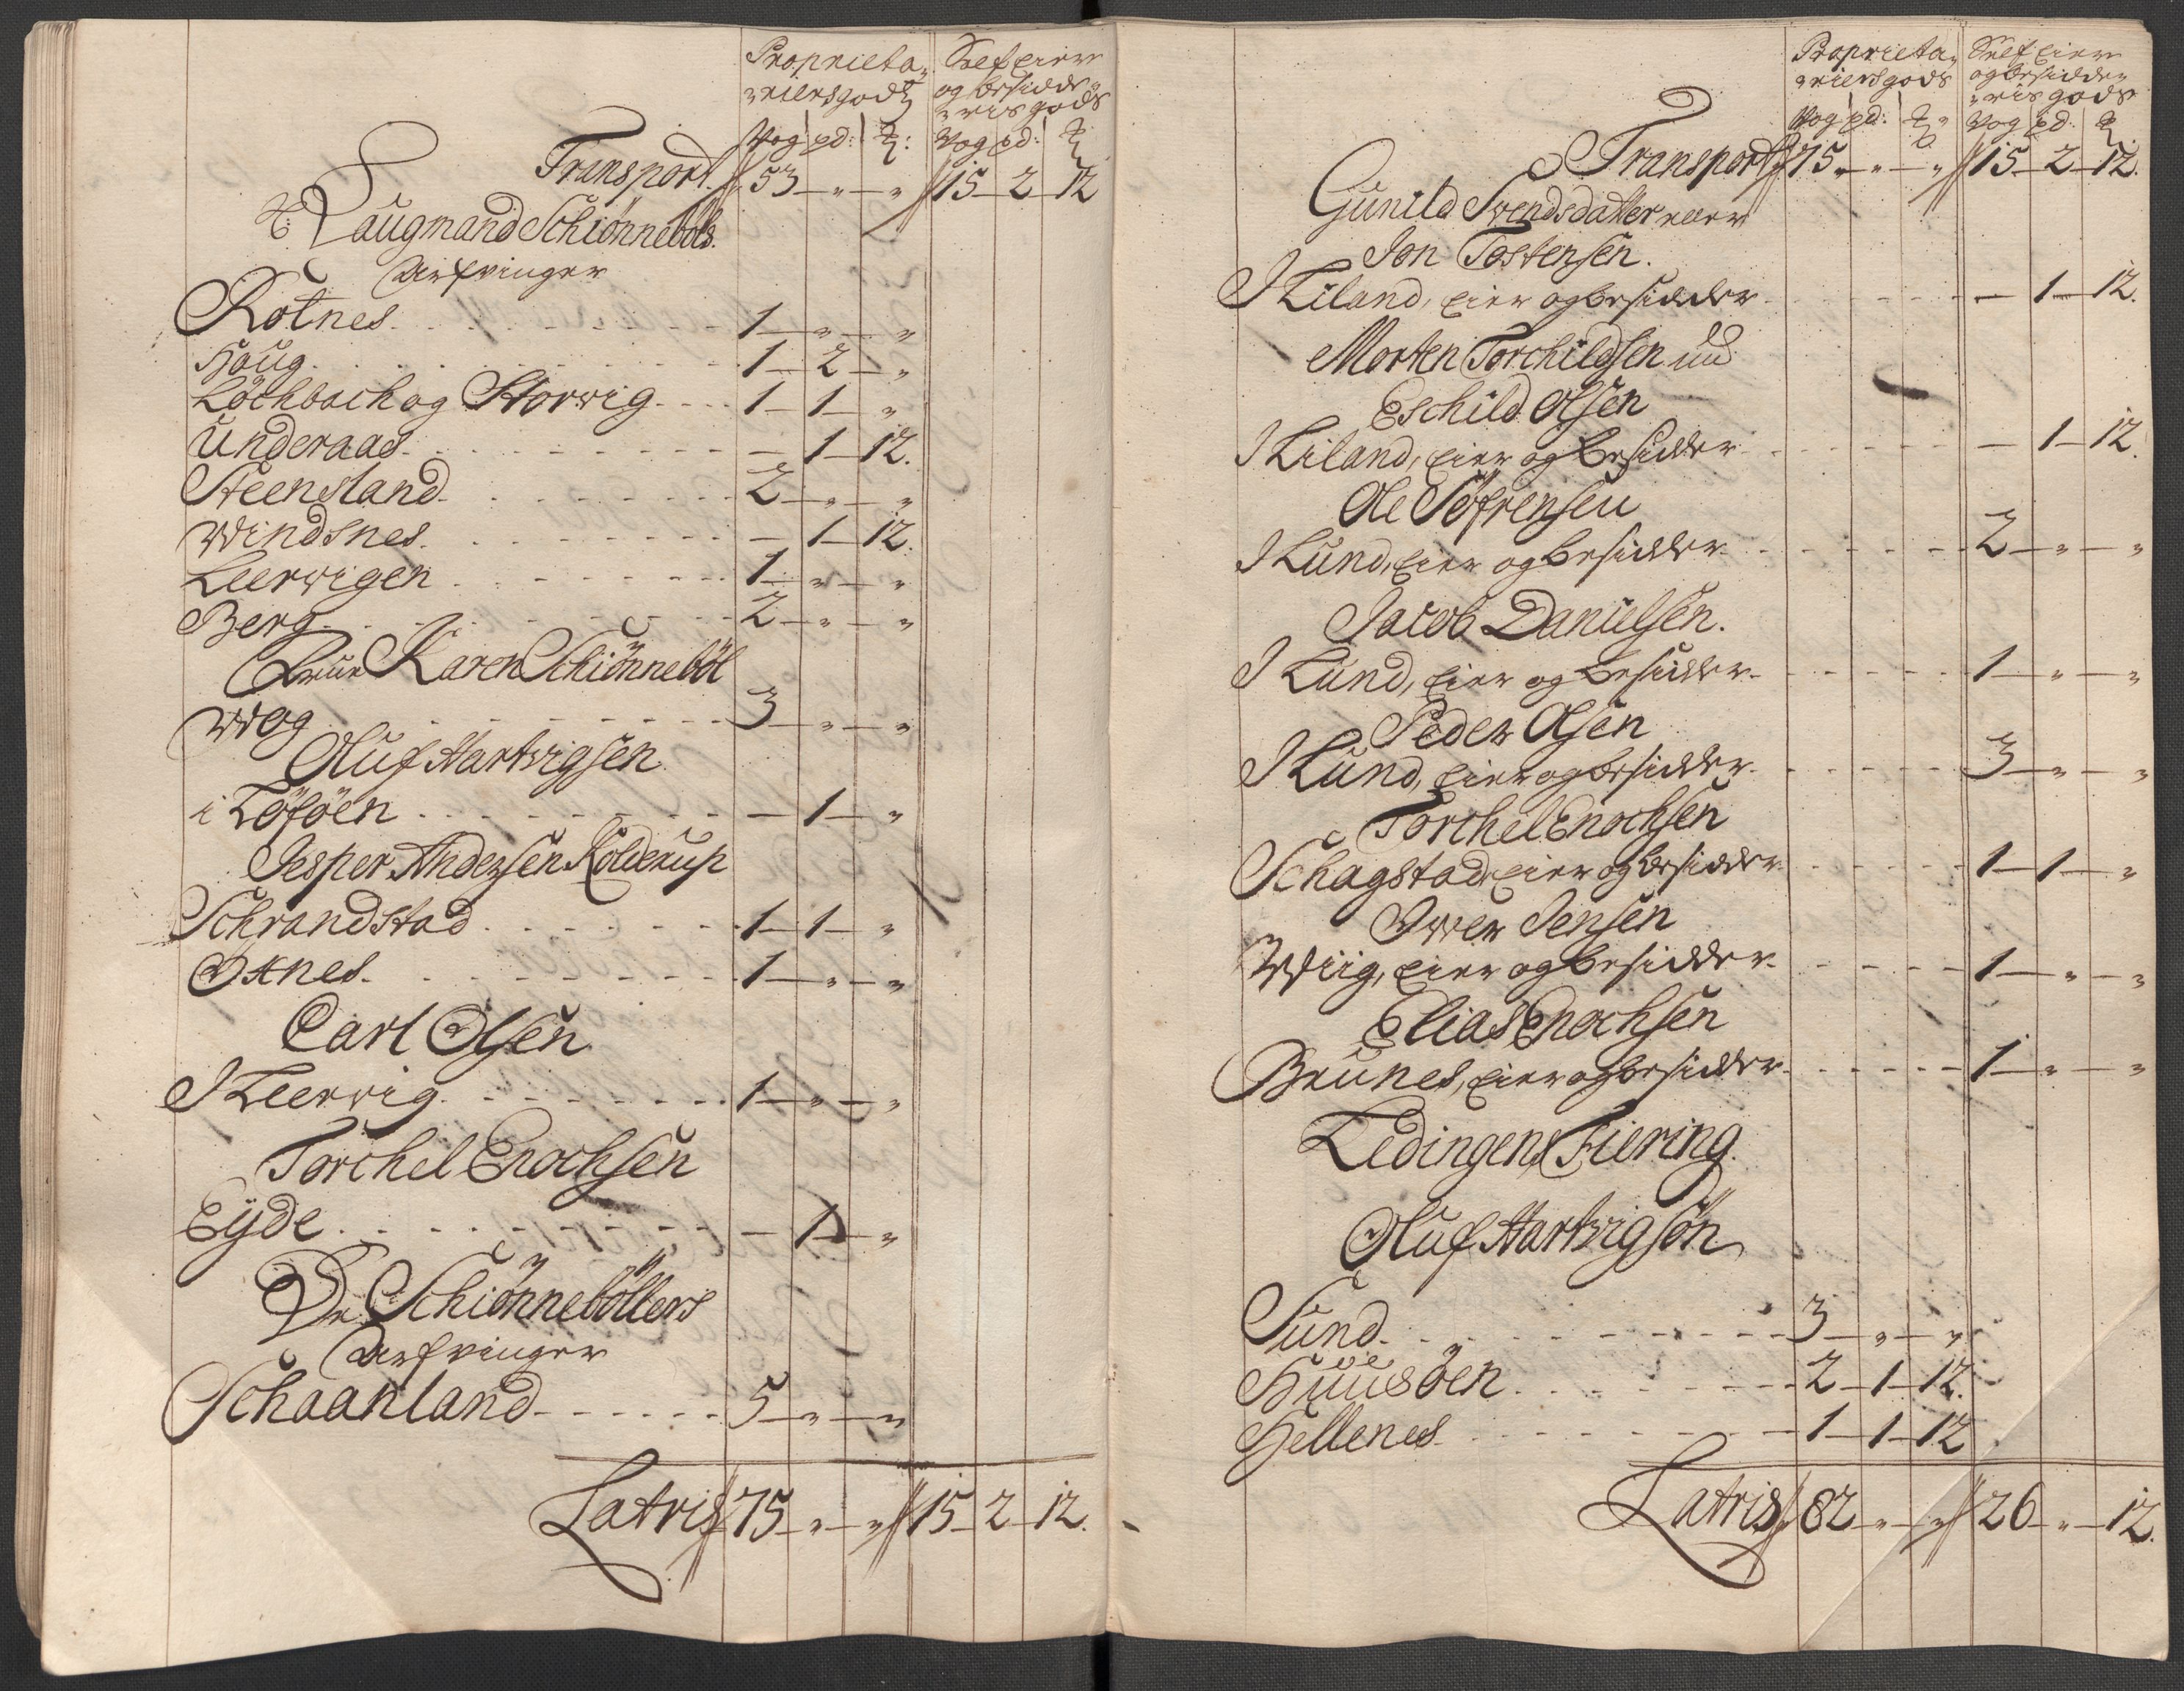 Proprieta-
riersgods
Self Eier
og besidde-
ris gods
Wog pd: ℔: Wog pd: ℔
Transport 53 — " — " 15 — 2 — 12
Laugmand Schiönneböls
Arfvinger
Rotnes 1 — " — "
Haug 1 — 2 — "
Löchbach og Storwig 1 — 1 — "
Underaas — 1 — 12.
Steensland 2 — " — "
Windsnes — 1 — 12.
Leerwigen 1 — " — "
Berg 2 — " — "
Frue Karen Schiönneböl
Wog 3 — " — "
Oluf Hartvigsen
i Löföen — 1 — "
Jesper Andersen Kolderup
Schrandstad 1 — 1 — "
Ottnes 1 — " — "
Carl Olsen
I Leervig 1 — " — "
Torchel Enochsen
Eyde — 1 — "
Dr Schiönneböllers
Arfvinger
Schaanland 5 — " — "
Latris 75 — " — " 15 — 2 — 12.
Proprieta-
riers gods
Self Eier
og besidde-
ris gods
Wog pd: ℔ Wog pd. ℔
Transport 75 — " — " 15 — 2 — 12.
Gunild Svendsdatter eller
Jon Tostensen.
I Liland, Eier og besidder — 1 — 12.
Morten Torchildsen nu
Eschild Olsen
I Liland, Eier og besidder — 1 — 12.
Ole Söfrensen
I Lund, Eier og besidder 2 — " — "
Jacob Danielsen.
I Lund, Eier og besidder 1 — " — "
Peder Olsen
I Lund, Eier og besidder 3 — " — "
Torchel Enochsen
Schagstad, Eier og besidder 1 — 1 — "
Iwer Jensen
Wiig, Eier og besidder 1 — " — "
Elias Enochsen
Brunes, Eier og besidder 1 — " — "
Ledingens Fiering
Oluf Hartvigsön
Sund 3 — " — "
Huusöen 2 — 1 — 12.
Hellenes 1 — 1 — 12
Latris 82 — " — " 26 — " — 12.